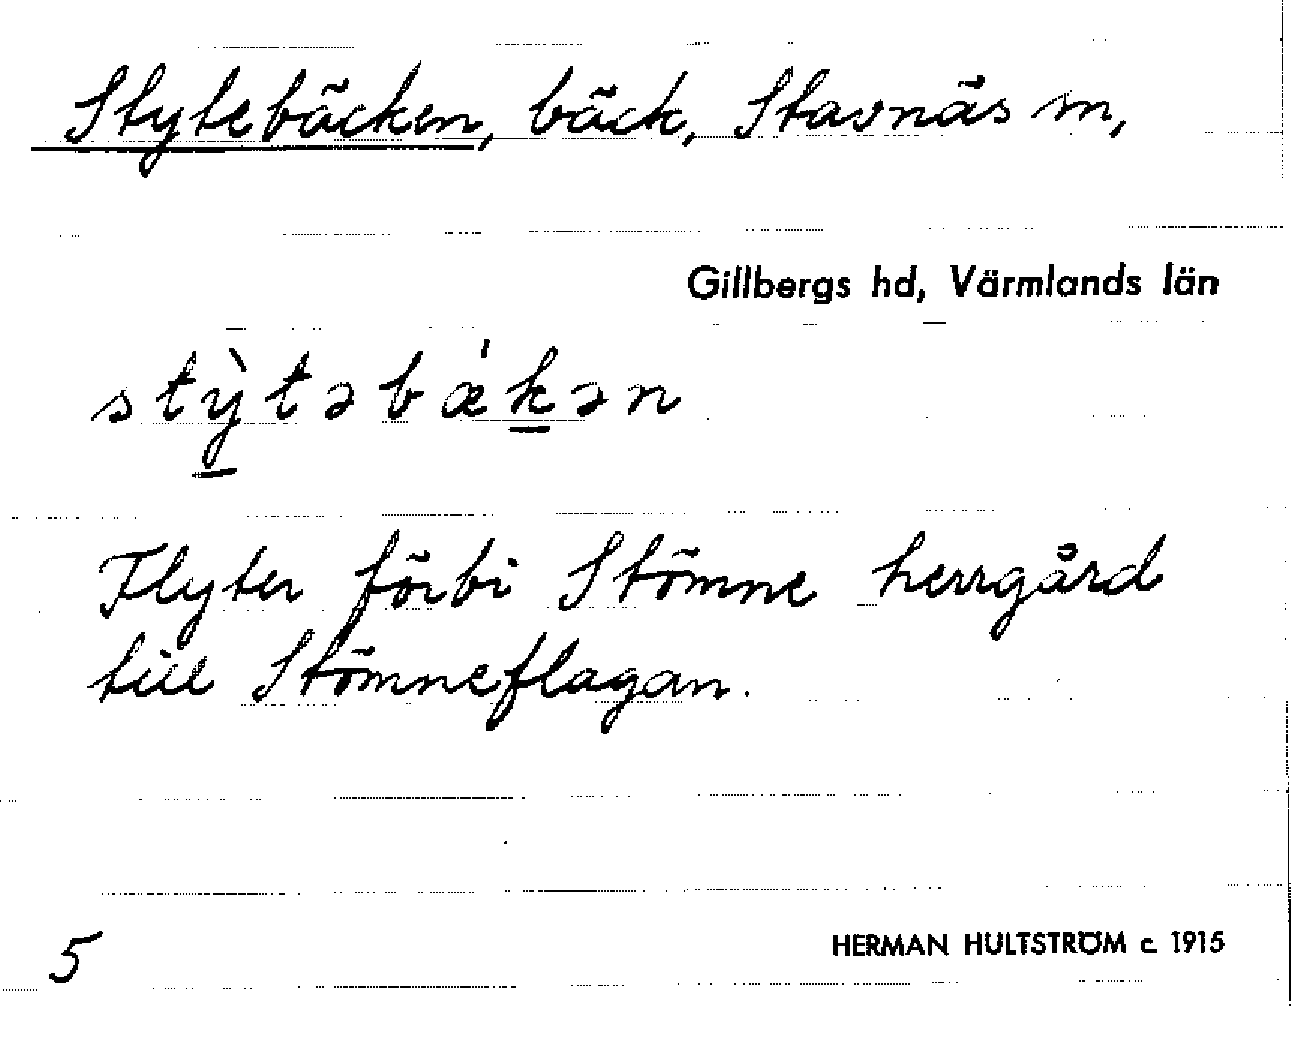 Stytebäcken, bäck, Stavnäs sn,
Gillbergs hd, Värmlands län
stỳ̲təbǽk̲ən
Flyter förbi Stömne herrgård
till Stömneflagan.
5
HERMAN HULTSTRÖM c. 1915